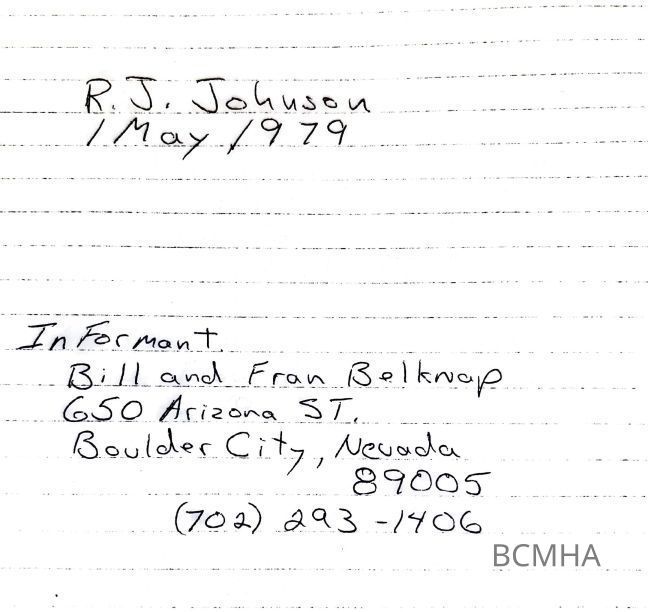 R.J. Johnson
1 May 1979
Informant
Bill and Fran Belknap
650 Arizona ST.
Boulder City, Nevada
89005
(702) 293-1406
BCMHA